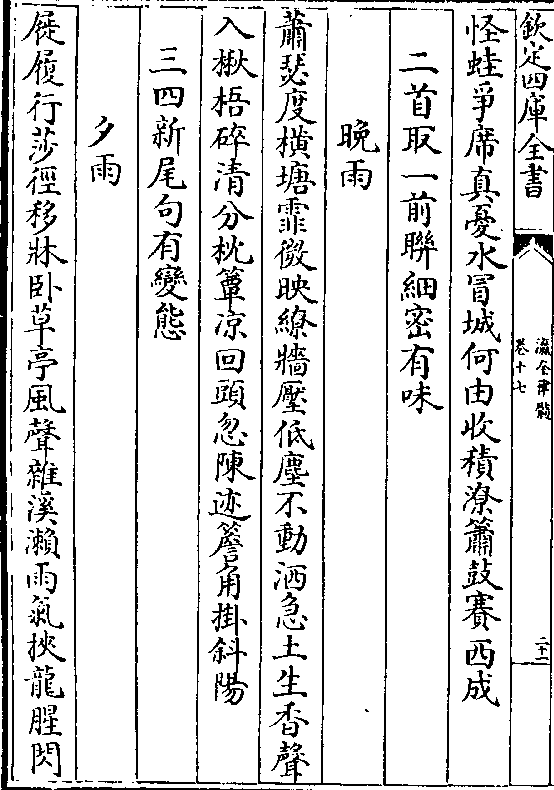 欽定四庫全書
瀛奎律髓
卷十七
二十二
怪蛙爭席真憂水冒城何由收積潦簫鼓賽西成
二首取一前聯細密有味
晚雨
蕭瑟度橫塘霏微映繚牆壓低塵不動洒急土生香聲
入楸梧碎清分枕簟凉回頭忽陳迹簷角掛斜陽
三四新尾句有變態
夕雨
屣履行莎徑移牀卧草亭風聲雜溪瀨雨氣挾龍腥閃